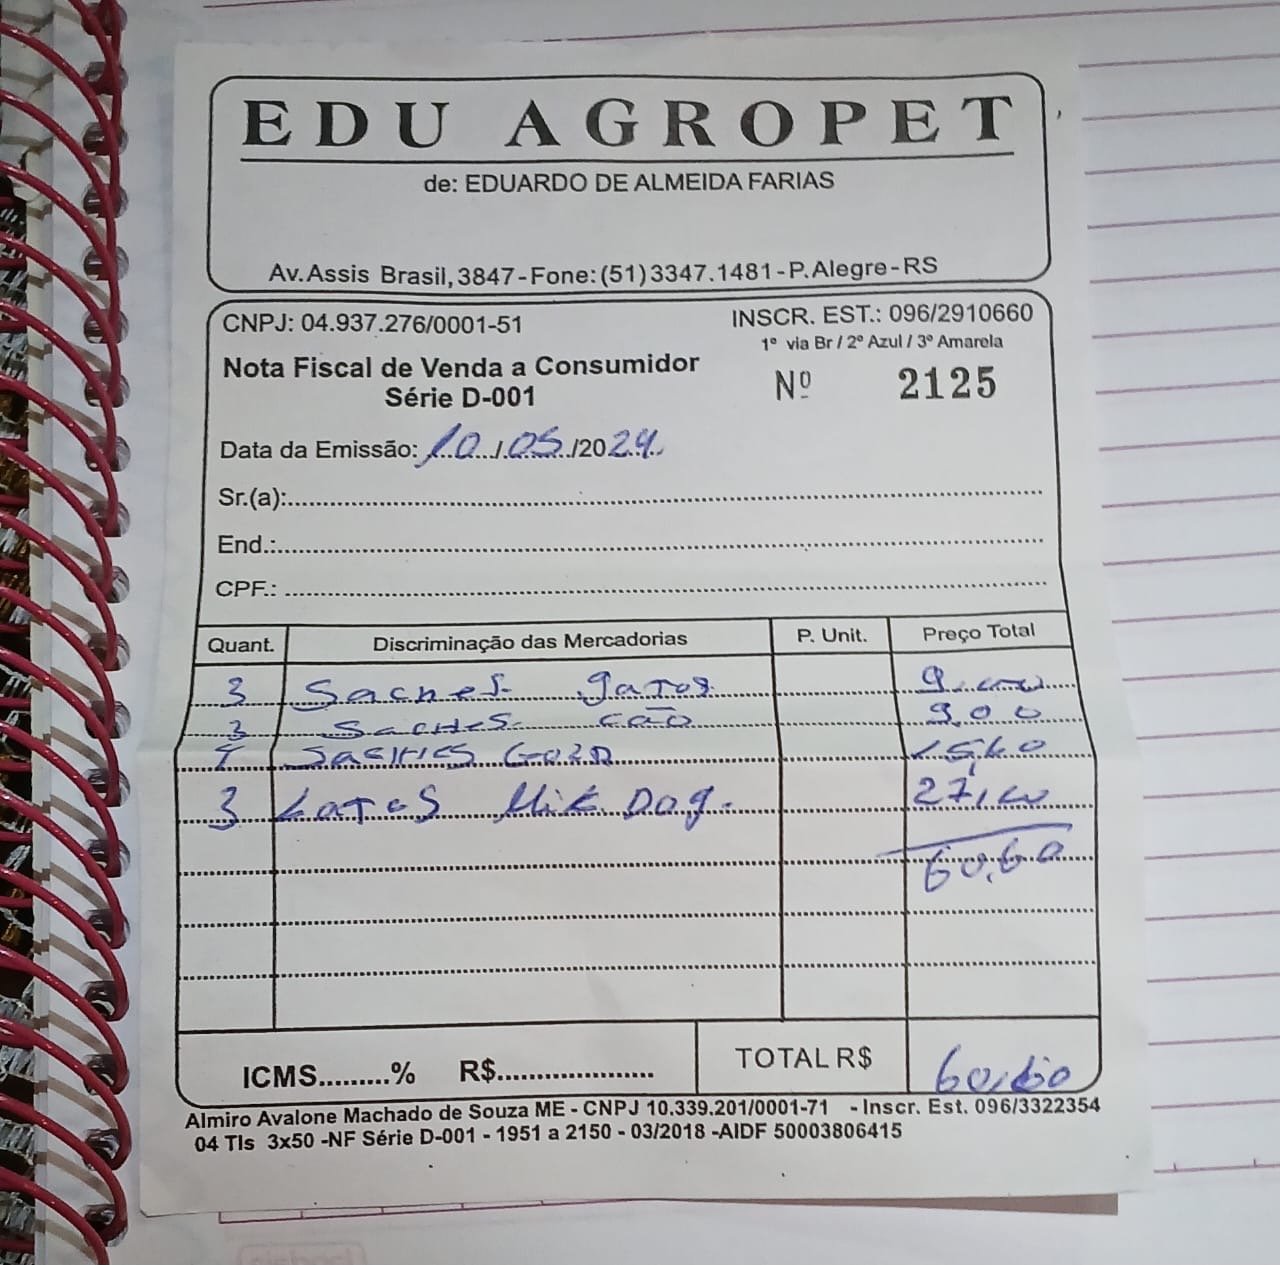 EDU AGROPET
de: EDUARDO DE ALMEIDA FARIAS
Av. Assis Brasil, 3847 - Fone: (51) 3347.1481 - P. Alegre - RS
CNPJ: 04.937.276/0001-51 INSCR. EST.: 096/2910660
1ª via Br / 2ª Azul / 3ª Amarela
Nota Fiscal de Venda a Consumidor
Série D-001
Nº 2125
Data da Emissão: 10/05/2024
Sr.(a):
End.:
CPF.:
Quant. Discriminação das Mercadorias P. Unit. Preço Total
3 Saches gatos 9,00
3 Saches cão 9,00
Saches 15,60
3 Latas Dog. 27,00
60,60
ICMS.........% R$.................... TOTAL R$ 60,60
Almiro Avalone Machado de Souza ME - CNPJ 10.339.201/0001-71 - Inscr. Est. 096/3322354
04 Tls 3x50 -NF Série D-001 - 1951 a 2150 - 03/2018 -AIDF 50003806415